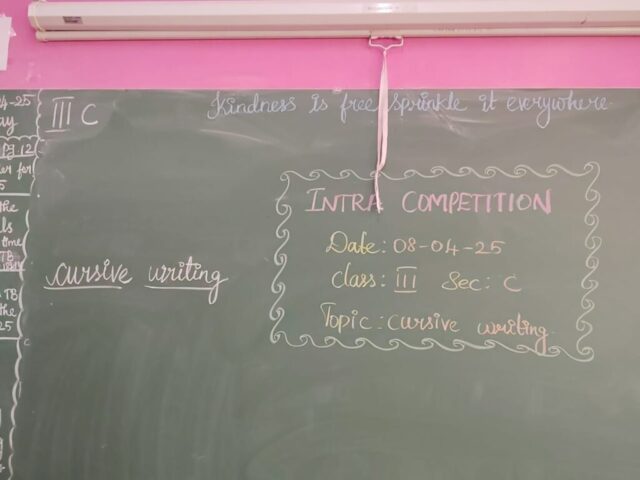 04-25
III C
Kindness is free sprinkle it everywhere
Pg.12
INTRA COMPETITION
Date: 08-04-25
Class: III Sec: C
Topic: cursive writing
cursive writing
the
time
TB
TB
the
25